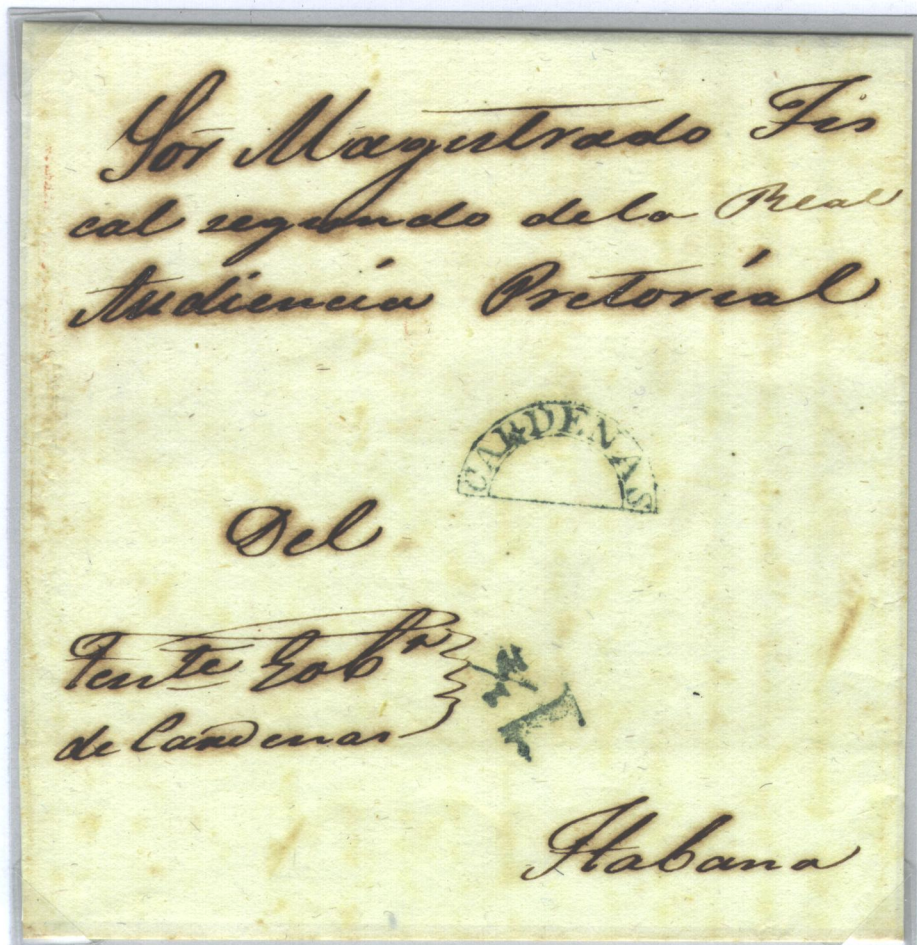 Sor Magistrado Fis
cal segundo de la Real
Audiencia Pretorial
CARDENAS
Del
Tente Gobr
de Cardenas
Habana